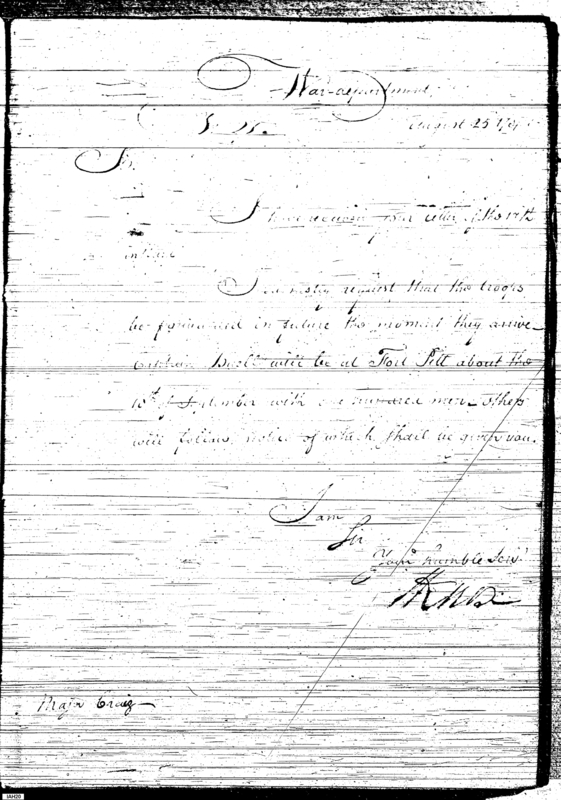 War-department,
August 25 179
Sir.
I have received your letter of the 17th
instant
I earnestly request that the troops
be forwarded in future the moment they arrive
Captain Buell will be at Fort Pitt about the
10th of September with one hundred men Others
will follow, notice of which shall be given you.
I am
Sir
Your humble Serv
HKnox
Major Craig
IAH20